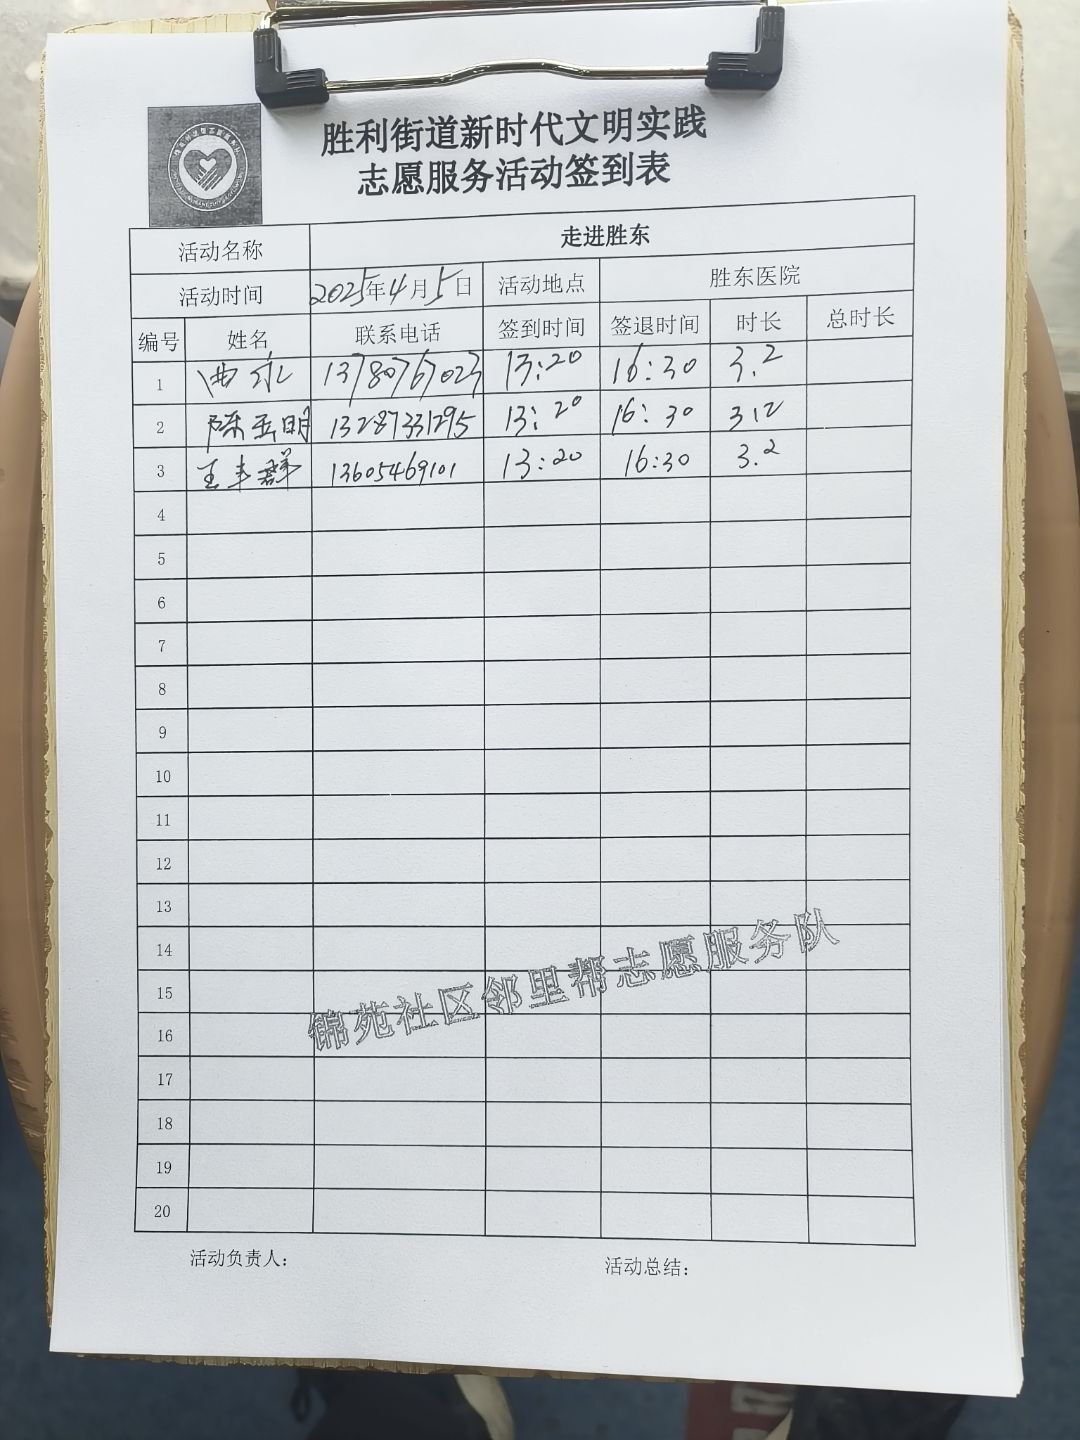 胜利街道新时代文明实践
志愿服务活动签到表
活动名称 走进胜东
活动时间 2025年4月5日 活动地点 胜东医院
编号 姓名 联系电话 签到时间 签退时间 时长 总时长
1 13780767023 13:20 16:30 3.2
2 陈岳明 13287331295 13:20 16:30 3.2
3 王丰群 13605469101 13:20 16:30 3.2
4
5
6
7
8
9
10
11
12
13
14
15
16
17
18
19
20
锦苑社区邻里帮志愿服务队
活动负责人: 活动总结: